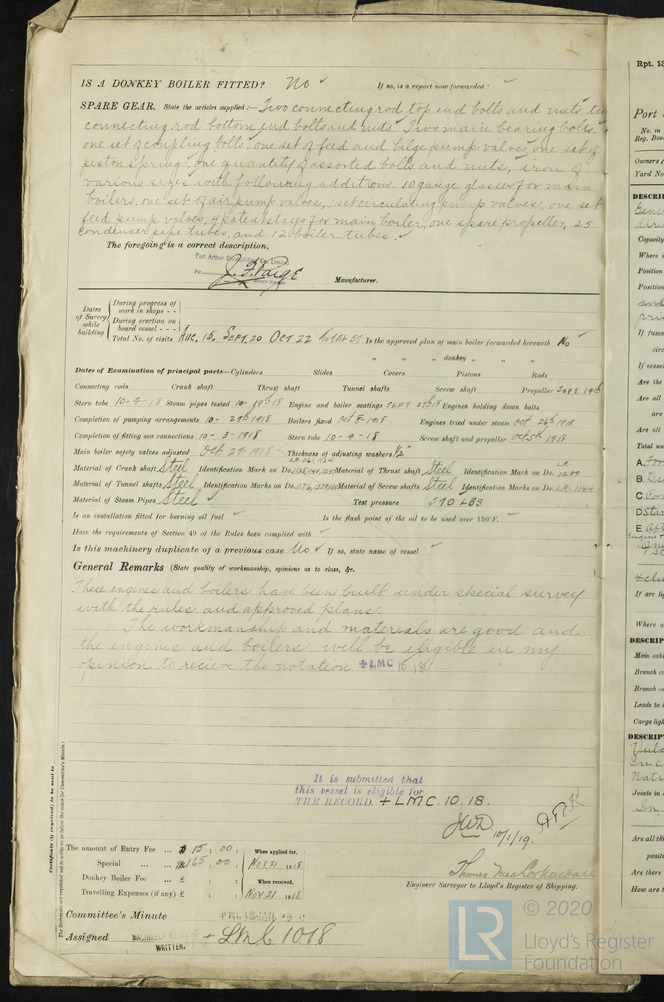 IS A DONKEY BOILER FITTED? No ✓ If so, is a report now forwarded? ✓
SPARE GEAR. State the articles supplied:— Two connecting rod top end bolts and nuts, two
connecting rod bottom end bolts and nuts. Two main bearing bolts.
one set of coupling bolts, one set of feed and bilge pump valves, one set of
piston springs, one quantity of assorted bolts and nuts, iron of
various sizes with following additions. 10 gauge glasses for main
boilers, one set of air pump valves, 1 set circulating pump valves, one set
feed pump valves, 4 patent stays for main boiler, one spare propeller, 25
condenser pipe tubes, and 12 boiler tubes. ✓
The foregoing is a correct description,
Port Arthur Shipbuilding Co. Limited
J. F. Paige Manufacturer.
Dates of Survey while building
During progress of work in shops - -
During erection on board vessel - - -
Total No. of visits
Aug. 15. Sept. 20 Oct 22 Total 57 Is the approved plan of main boiler forwarded herewith No ✓
" " " donkey " " "
Dates of Examination of principal parts—Cylinders Slides Covers Pistons Rods
Connecting rods Crank shaft Thrust shaft Tunnel shafts Screw shaft Propeller Sept. 19th
Stern tube 10-4-18 Steam pipes tested 10-19th 18 Engine and boiler seatings Sept 27th 18 Engines holding down bolts
Completion of pumping arrangements 10-29th 1918 Boilers fixed Oct 8-1918 Engines tried under steam Oct 26th 1918
Completion of fitting sea connections 10-3-1918 Stern tube 10-4-18 Screw shaft and propeller Oct 5th 1918
Main boiler safety valves adjusted Oct 27-1918 Thickness of adjusting washers 1/2"
Material of Crank shaft Steel Identification Mark on Do. Material of Thrust shaft Steel Identification Mark on Do. LR 1209
Material of Tunnel shafts Steel Identification Marks on Do. Material of Screw shafts Steel Identification Marks on Do. LR-1144
Material of Steam Pipes Steel ✓ Test pressure 570 LBS
Is an installation fitted for burning oil fuel ✓ Is the flash point of the oil to be used over 150°F. ✓
Have the requirements of Section 49 of the Rules been complied with ✓
Is this machinery duplicate of a previous case No ✓ If so, state name of vessel ✓
General Remarks (State quality of workmanship, opinions as to class, &c.
These engines and boilers have been built under special survey
with the rules and approved plans.
The workmanship and materials are good and
the engines and boilers will be eligible in my
opinion to recieve the notation ✠LMC 10.18
It is submitted that
this vessel is eligible for
THE RECORD. + LMC. 10. 18.
JWD 10/1/19.
Certificate (if required) to be sent to
The amount of Entry Fee ... $ 15 : 00 : When applied for,
Special ... ... $ 165 : 00 : Nov 21 1918
Donkey Boiler Fee ... £ : : When received,
Travelling Expenses (if any) £ : : Nov 21 1918
Engineer Surveyor to Lloyd's Register of Shipping.
Committee's Minute
Assigned + LMC 10 18
WRITTEN.
Rpt. 13
Port
No. in
Reg. Book
Owners
Yard No
DESCRI
Capacity
Where
Position
Position
If fuses
circ
If vessel
Are the
Are all
are
Are all
Total nu
A
B
C
D Star
E
If are lig
Where a
DESCRIP
Main cabl
Branch c
Branch c
Leads to
Cargo ligh
DESCRIPT
Joints in
In
Are all th
positi
Are there
How are t
LR
© 2020
Lloyd's Register
Foundation